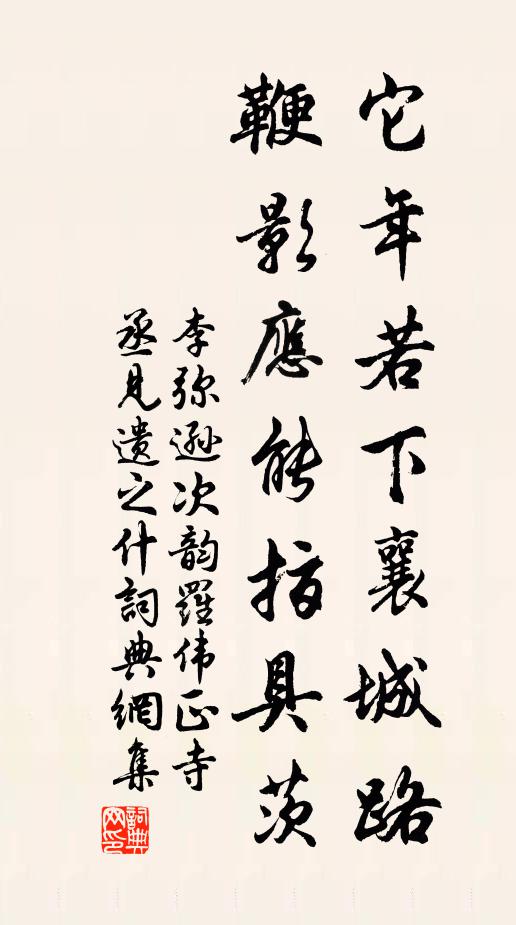 它年若下襄城路
鞭影應能指具茨
李弥遜次韵羅伟正寺
丞見遺之什詞典網集
詞典網印